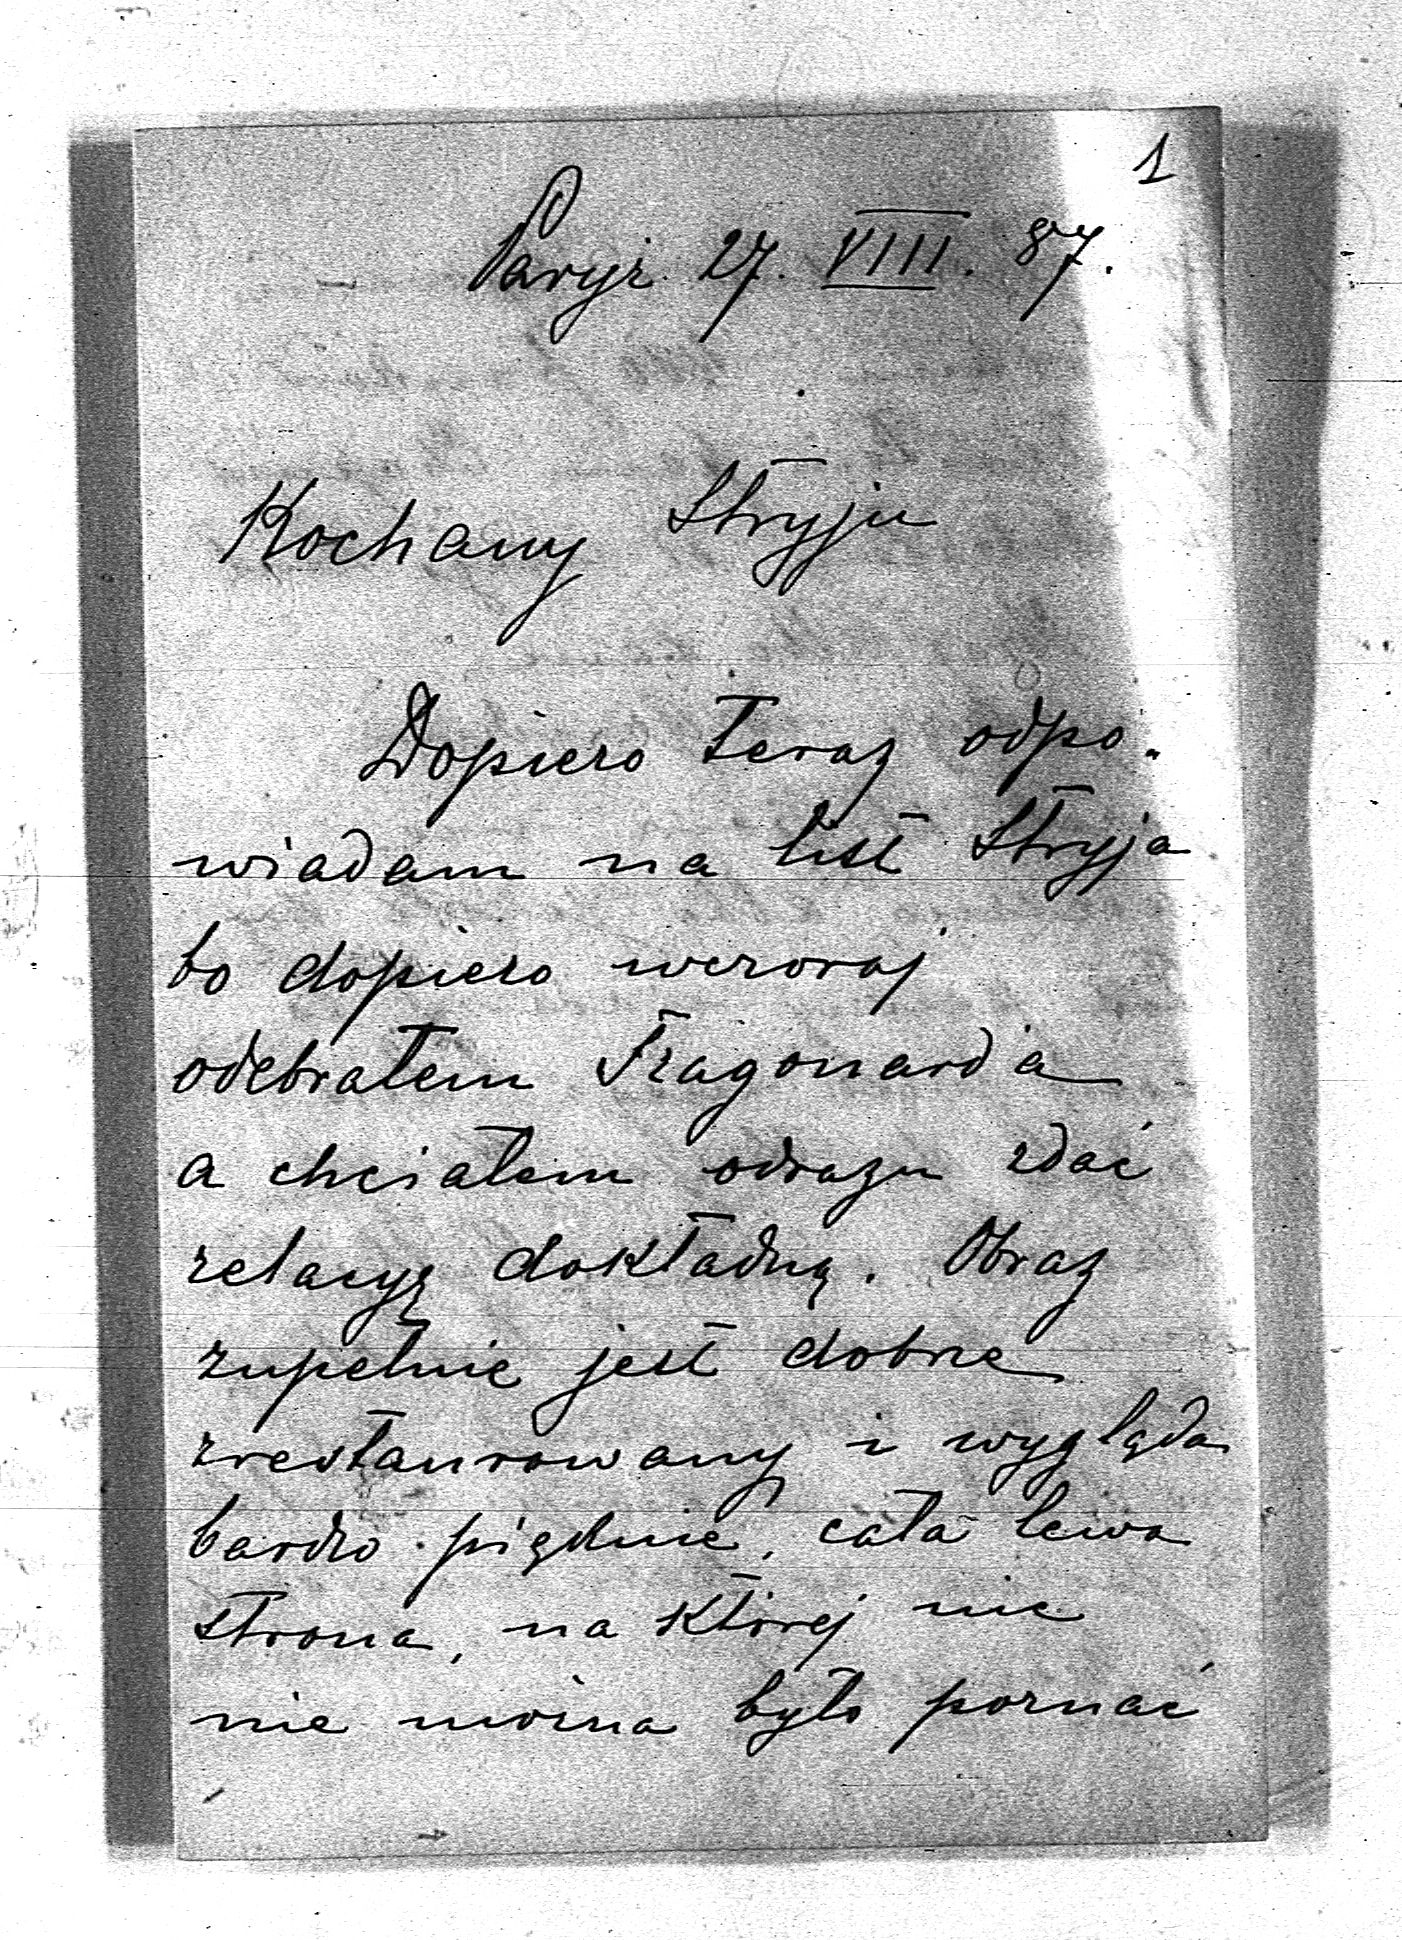 1
Paryż 27. VIII. 87.
Kochany Stryju
Dopiero teraz odpo-
wiadam na list Stryja
bo dopiero wczoraj
odebrałem Fragonard'a
a chciałem odrazu zdać
relacyę dokładną. Obraz
zupełnie jest dobrze
zrestaurowany i wygląda
bardzo pięknie, cała lewa
strona, na której nic
nie można było poznać